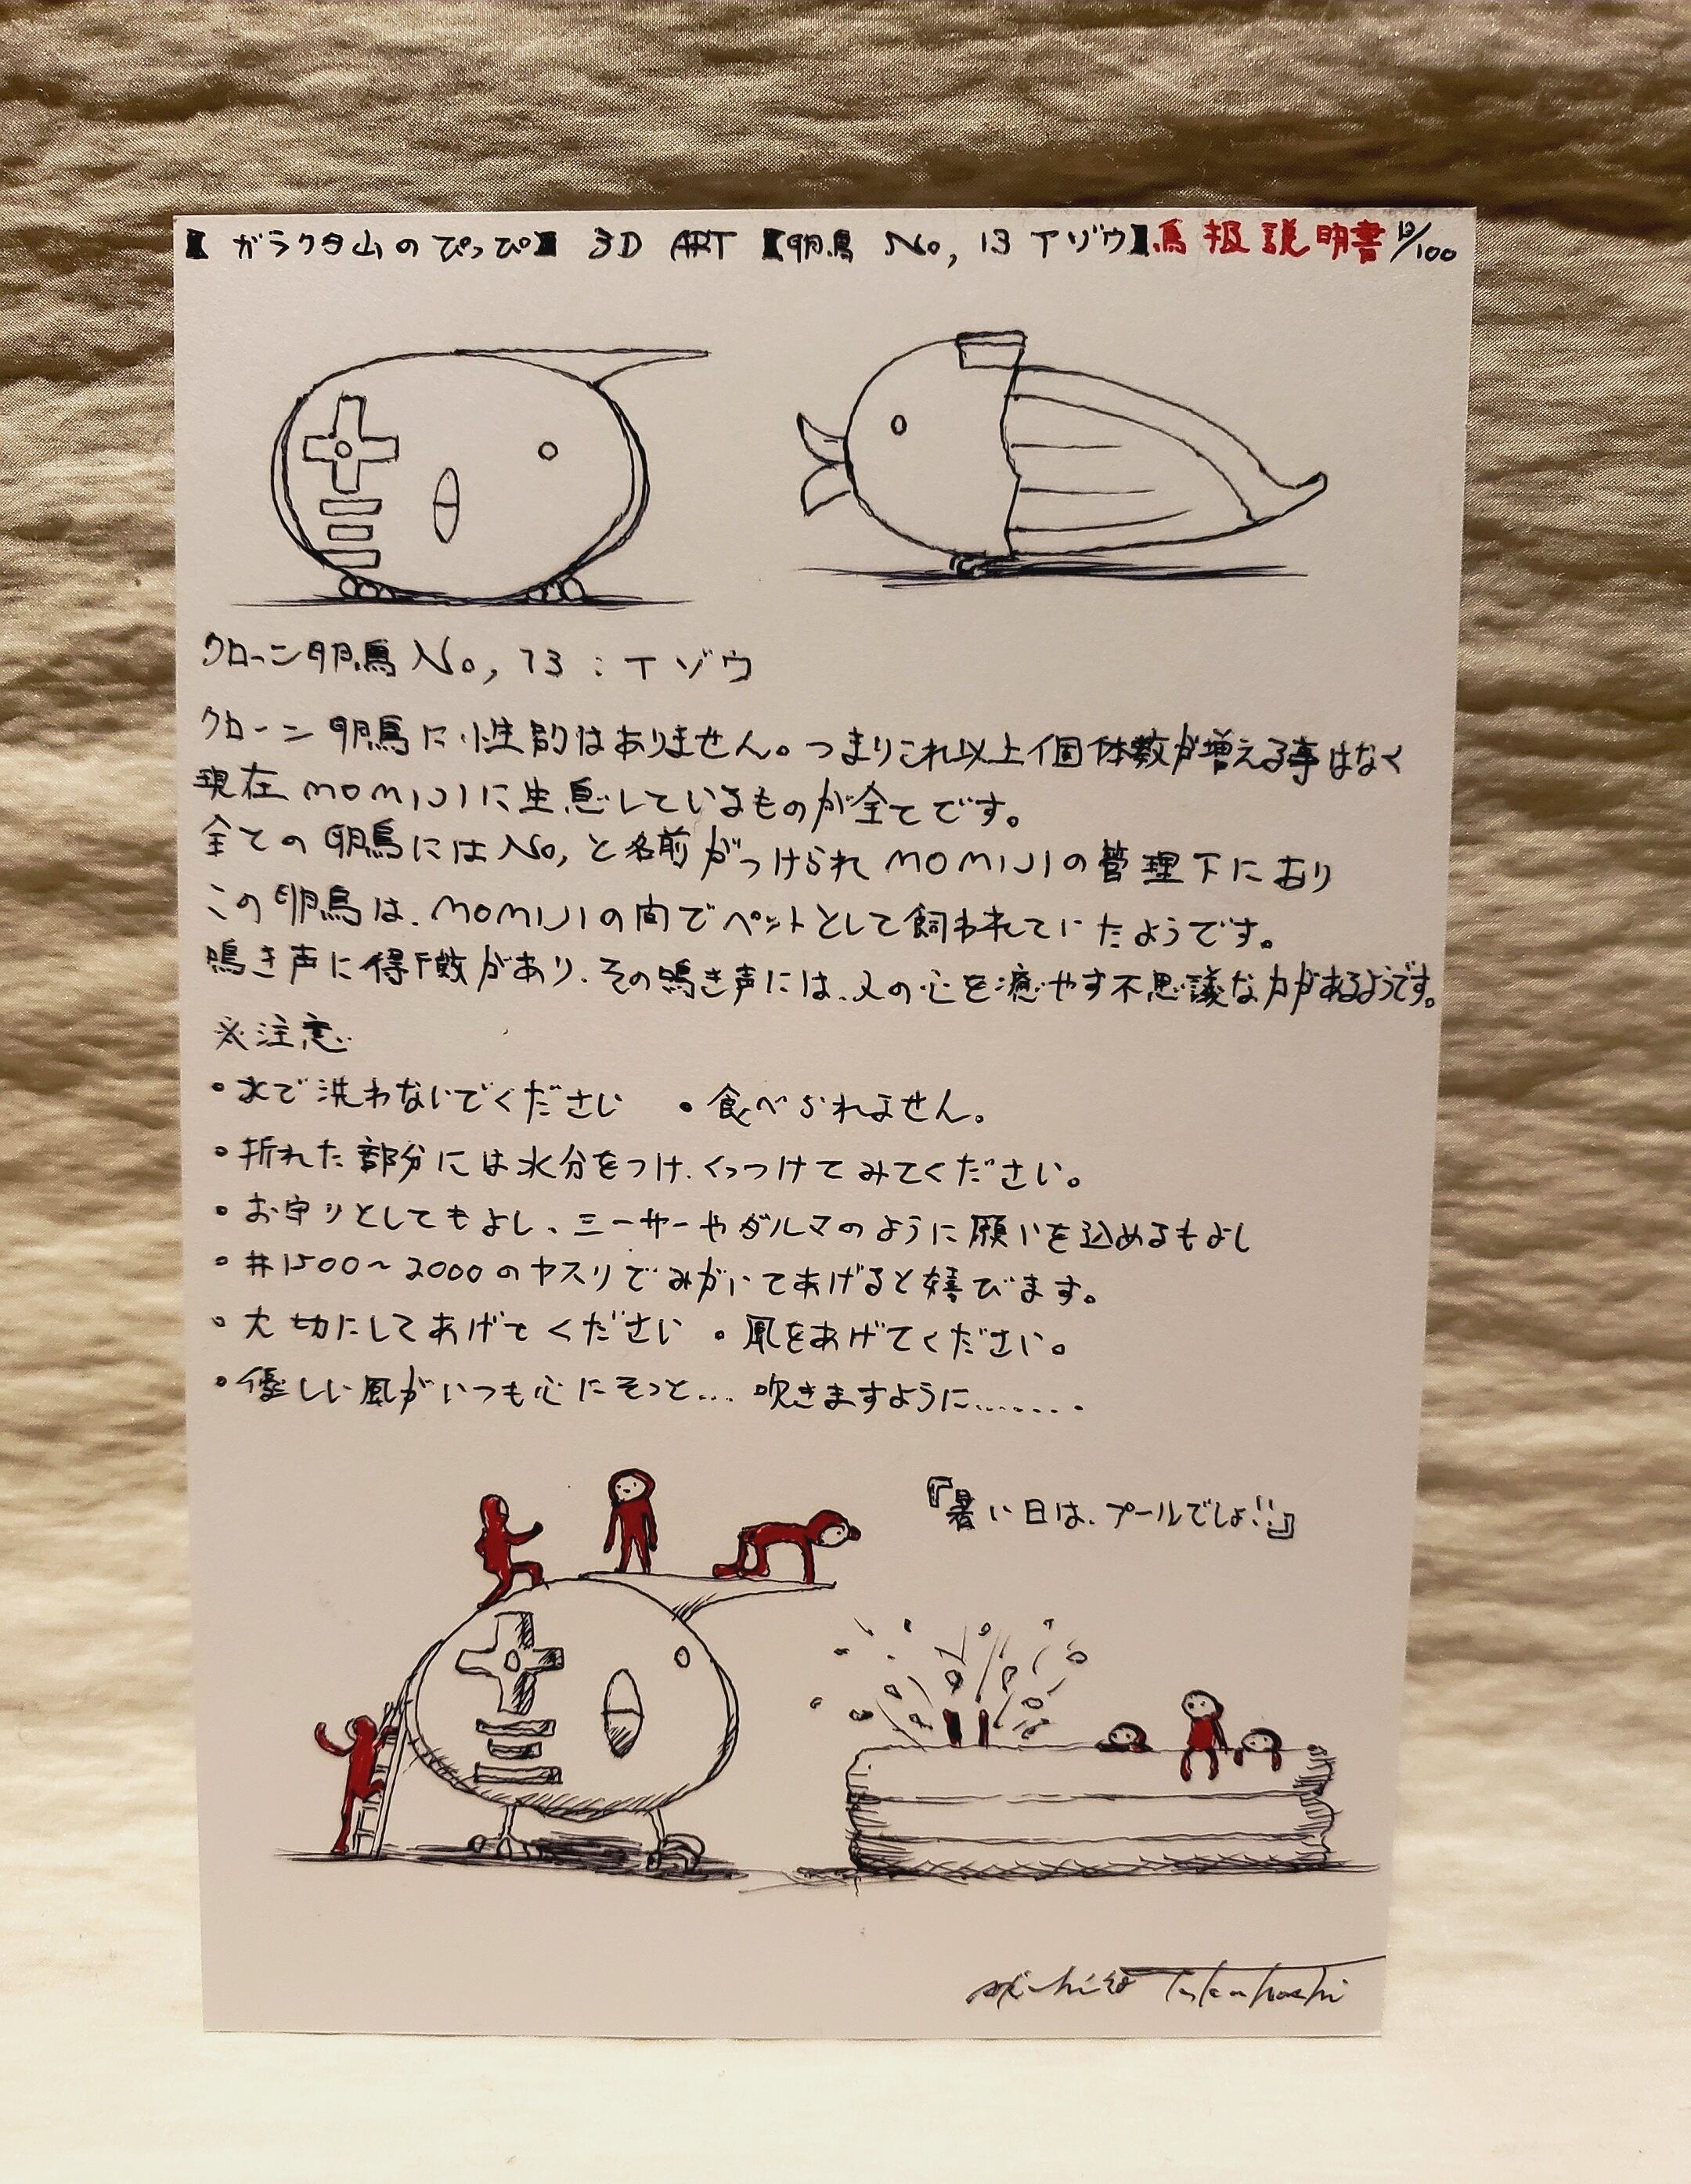 【ガラクタ山のぴっぴ】 3D ART 【卵鳥 No, 13 Tゾウ】鳥扱説明書 13/100
クローン卵鳥 No, 13 : Tゾウ
クローン卵鳥に性別はありません。つまりこれ以上個体数が増える事はなく
現在 MOMIJIに生息しているものが全てです。
全ての卵鳥にはNo,と名前がつけられMOMIJIの管理下にあり
この卵鳥は、MOMIJIの間でペットとして飼われていたようです。
鳴き声に特徴があり、その鳴き声には、人の心を癒やす不思議な力があるようです。
※注意
・水で洗わないでください ・食べられません。
・折れた部分には水分をつけ、くっつけてみてください。
・お守りとしてもよし、シーサーやダルマのように願いを込めるもよし
・#1500〜2000のヤスリでみがいてあげると喜びます。
・大切にしてあげてください ・風をあげてください。
・優しい風がいつも心にそっと… 吹きますように.......
『暑い日は、プールでしょ!!』
Akihiro Takahashi